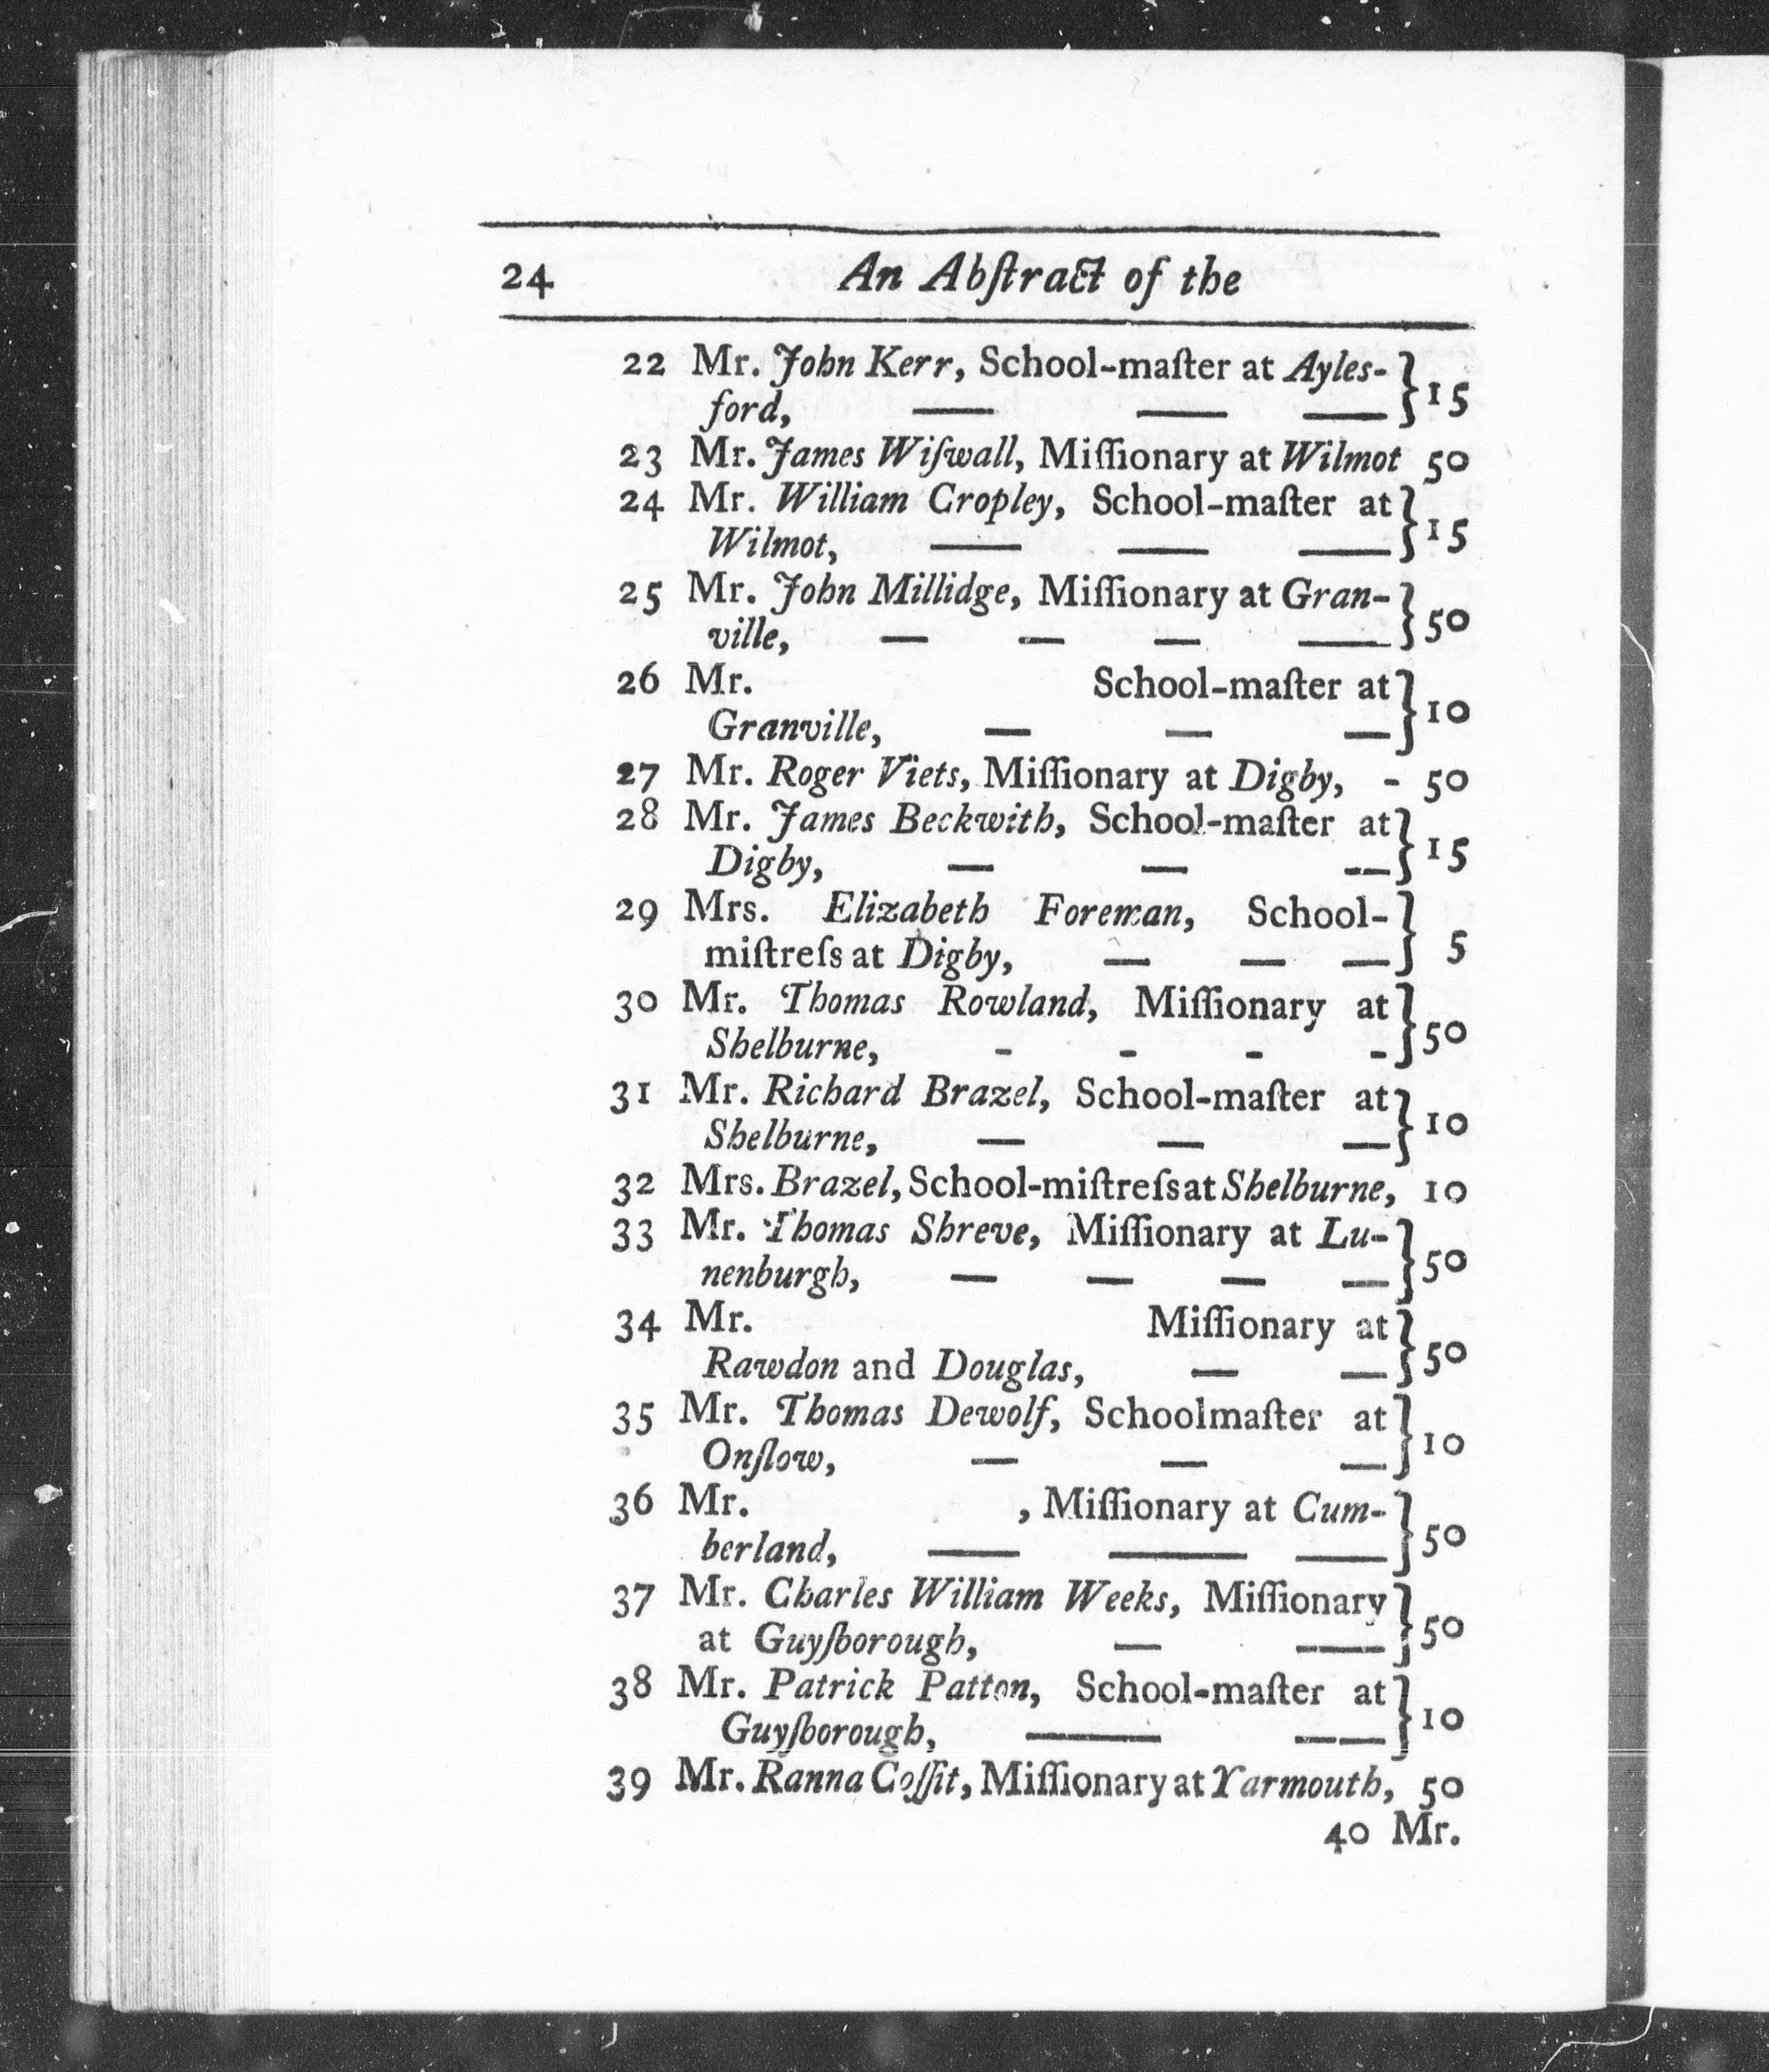 24 An Abſtract of the
22 Mr. John Kerr, School-maſter at Ayles- } 15
ford, — — —
23 Mr. James Wiſwall, Miſſionary at Wilmot 50
24 Mr. William Cropley, School-maſter at } 15
Wilmot, — — —
25 Mr. John Millidge, Miſſionary at Gran- } 50
ville, — — — —
26 Mr. School-maſter at } 10
Granville, — — —
27 Mr. Roger Viets, Miſſionary at Digby, - 50
28 Mr. James Beckwith, School-maſter at } 15
Digby, — — —
29 Mrs. Elizabeth Foreman, School- } 5
miſtreſs at Digby, — — —
30 Mr. Thomas Rowland, Miſſionary at } 50
Shelburne, - - - -
31 Mr. Richard Brazel, School-maſter at } 10
Shelburne, — — —
32 Mrs. Brazel, School-miſtreſs at Shelburne, 10
33 Mr. Thomas Shreve, Miſſionary at Lu- } 50
nenburgh, — — — —
34 Mr. Miſſionary at } 50
Rawdon and Douglas, — —
35 Mr. Thomas Dewolf, Schoolmaſter at } 10
Onſlow, — — —
36 Mr. , Miſſionary at Cum- } 50
berland, — — —
37 Mr. Charles William Weeks, Miſſionary } 50
at Guyſborough, — —
38 Mr. Patrick Patton, School-maſter at } 10
Guyſborough, — —
39 Mr. Ranna Coſſit, Miſſionary at Yarmouth, 50
40 Mr.